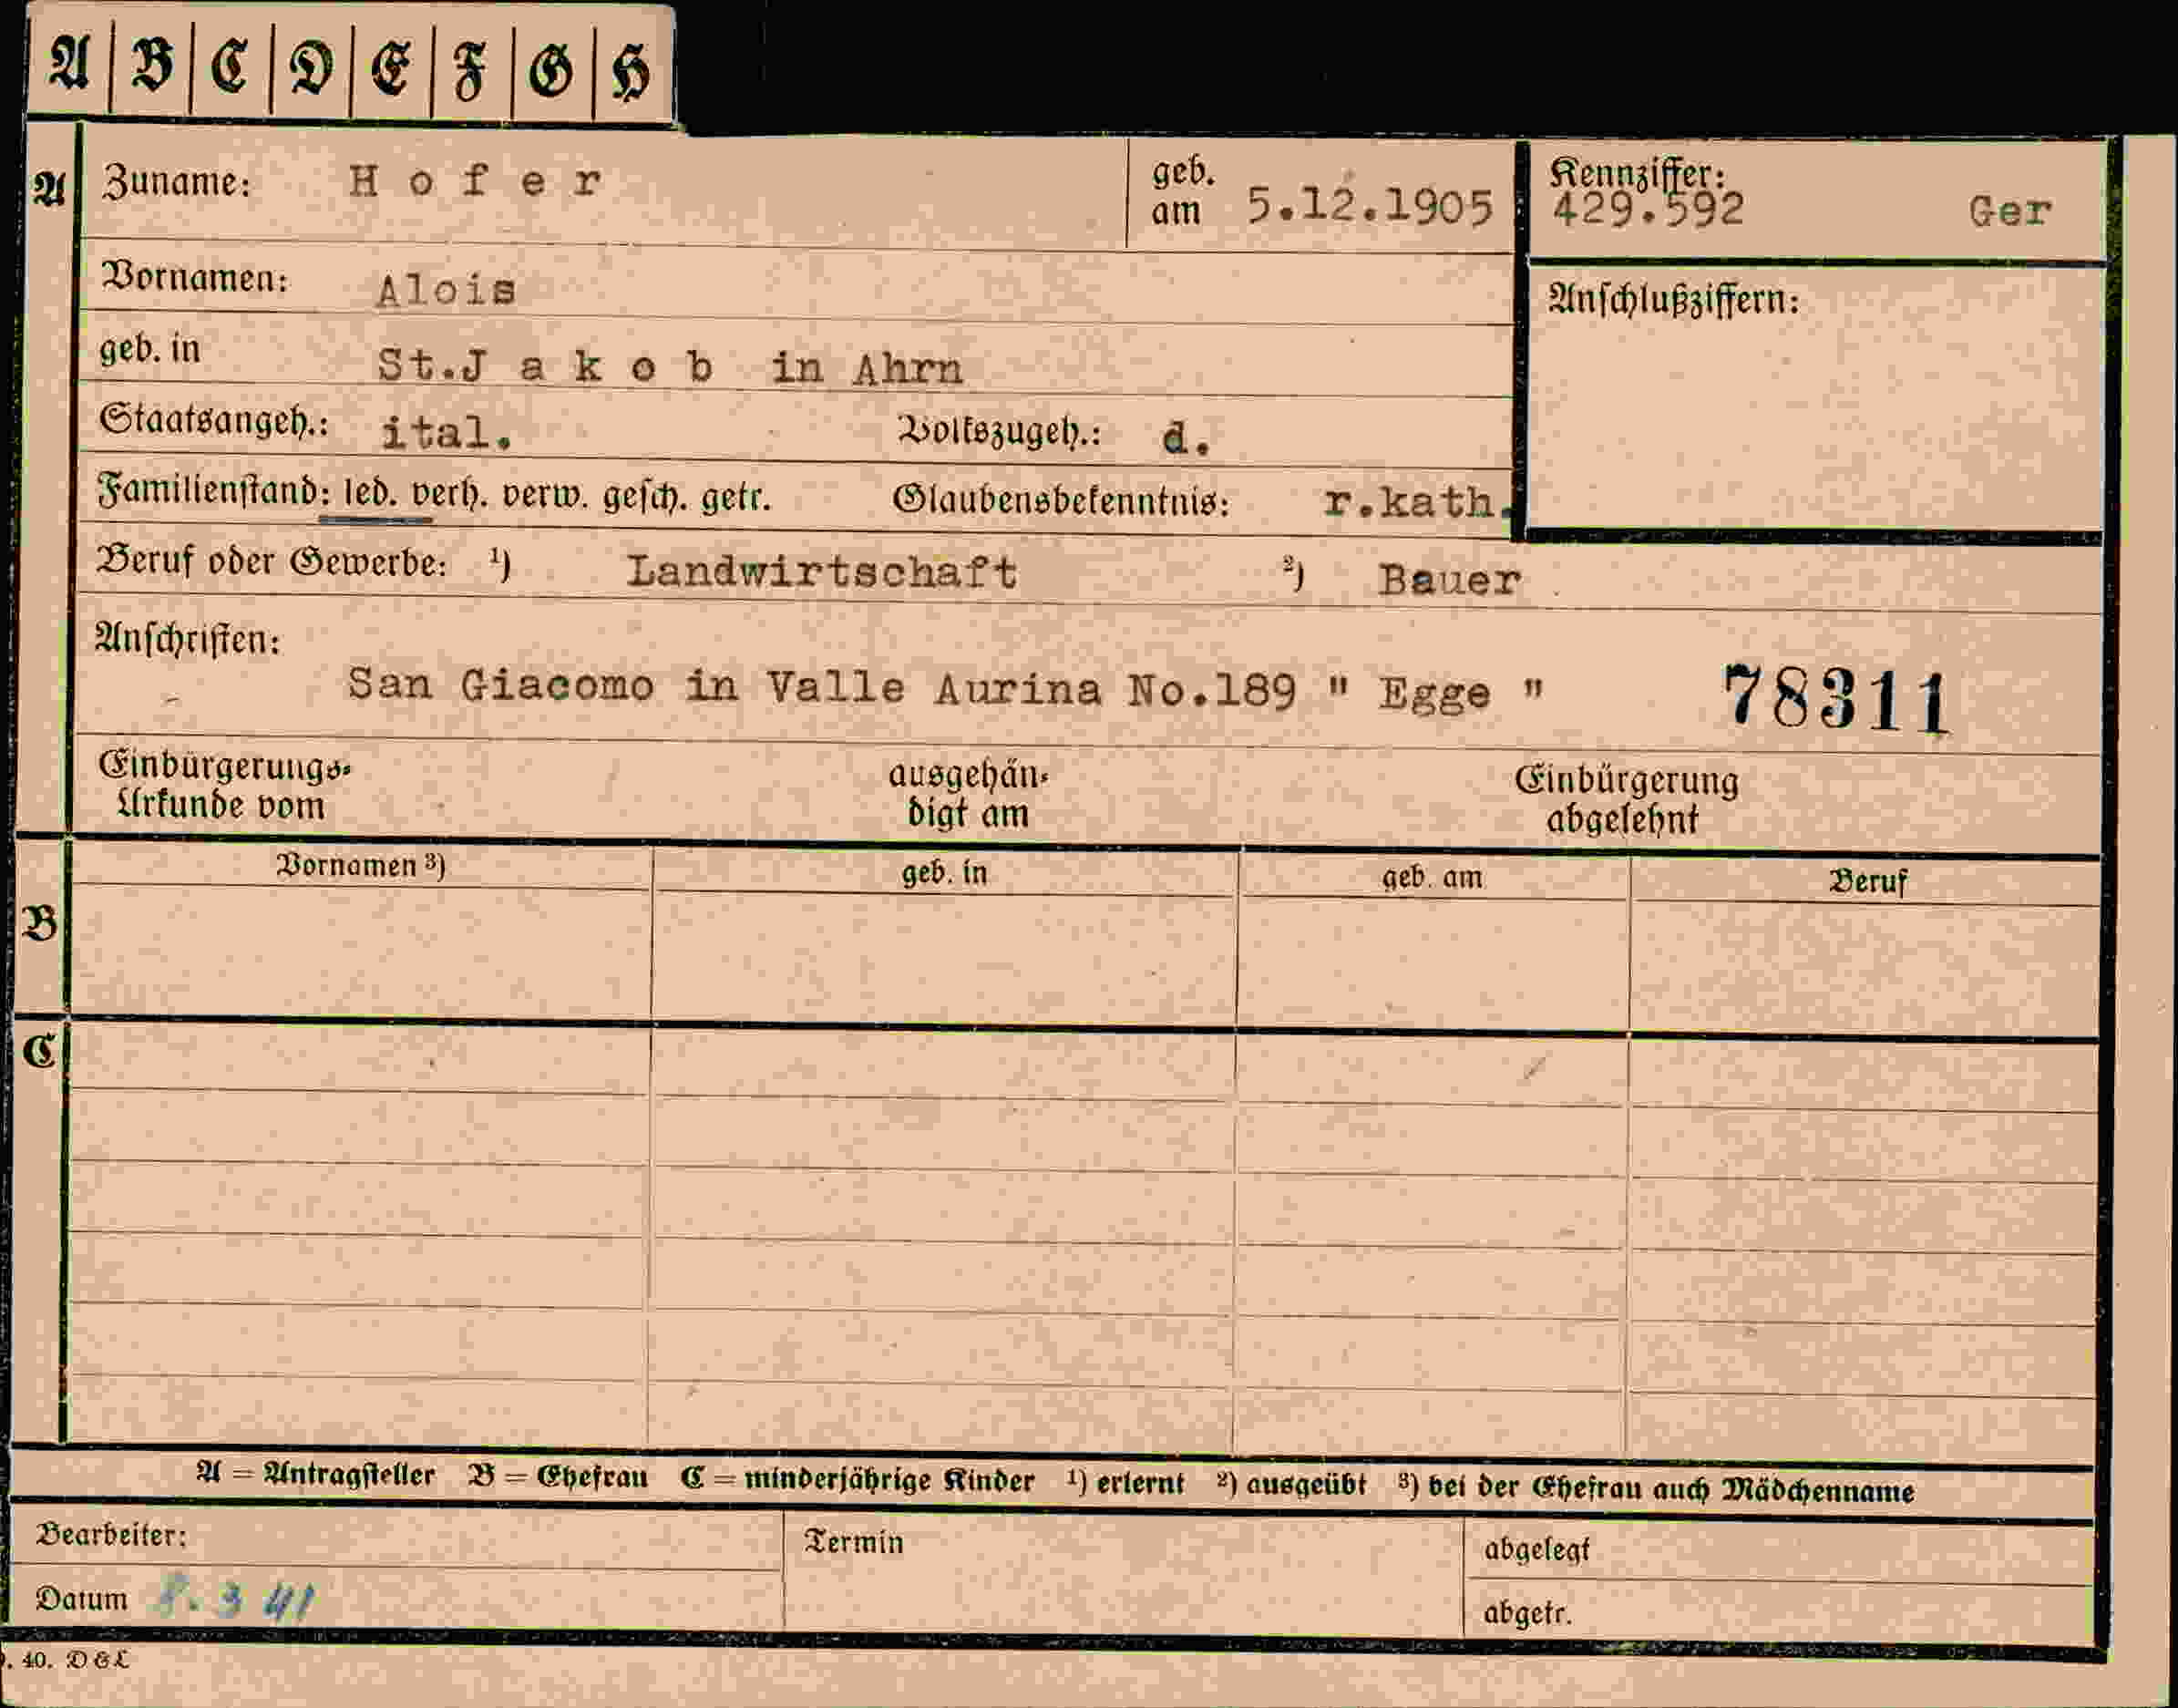 A B C D E F G H
A Zuname: H o f e r geb. am 5.12.1905 Kennziffer: 429.592 Ger
Vornamen: Alois Anschlußziffern:
geb. in St.J a k o b in Ahrn
Staatsangeh.: ital. Volkszugeh.: d.
Familienstand: led. verh. verw. gesch. getr. Glaubensbekenntnis: r.kath.
Beruf oder Gewerbe: ¹) Landwirtschaft ²) Bauer
Anschriften:
San Giacomo in Valle Aurina No.189 " Egge " 78311
Einbürgerungs- ausgehän- Einbürgerung
Urkunde vom digt am abgelehnt
Vornamen ³) geb. in geb. am Beruf
B
C
A = Antragsteller B = Ehefrau C = minderjährige Kinder ¹) erlernt ²) ausgeübt ³) bei der Ehefrau auch Mädchenname
Bearbeiter: Termin abgelegt
Datum 8. 3 41 abgetr.
. 40. D & L